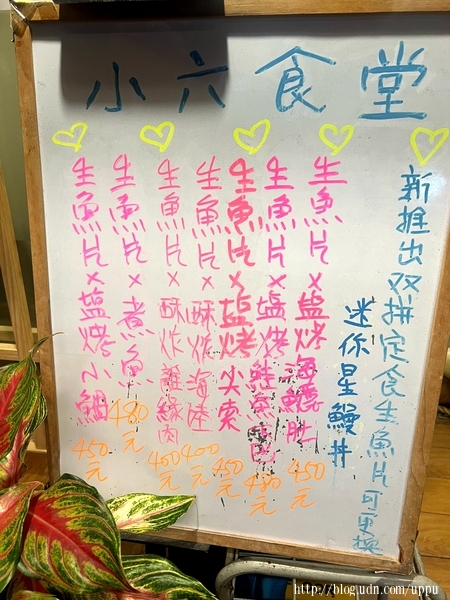 小六食堂
新推出双拼定食生魚片可更換
迷你星鰻丼
生魚片×塩烤海鱺肚 450元
生魚片×塩烤鮭魚 480元
生魚片×塩烤尖梭 450元
生魚片×酥炸海陸 400元
生魚片×酥炸雞腿肉 400元
生魚片×煮魚 480元
生魚片×塩烤小鯛 450元
http://blog.udn.com/uppu